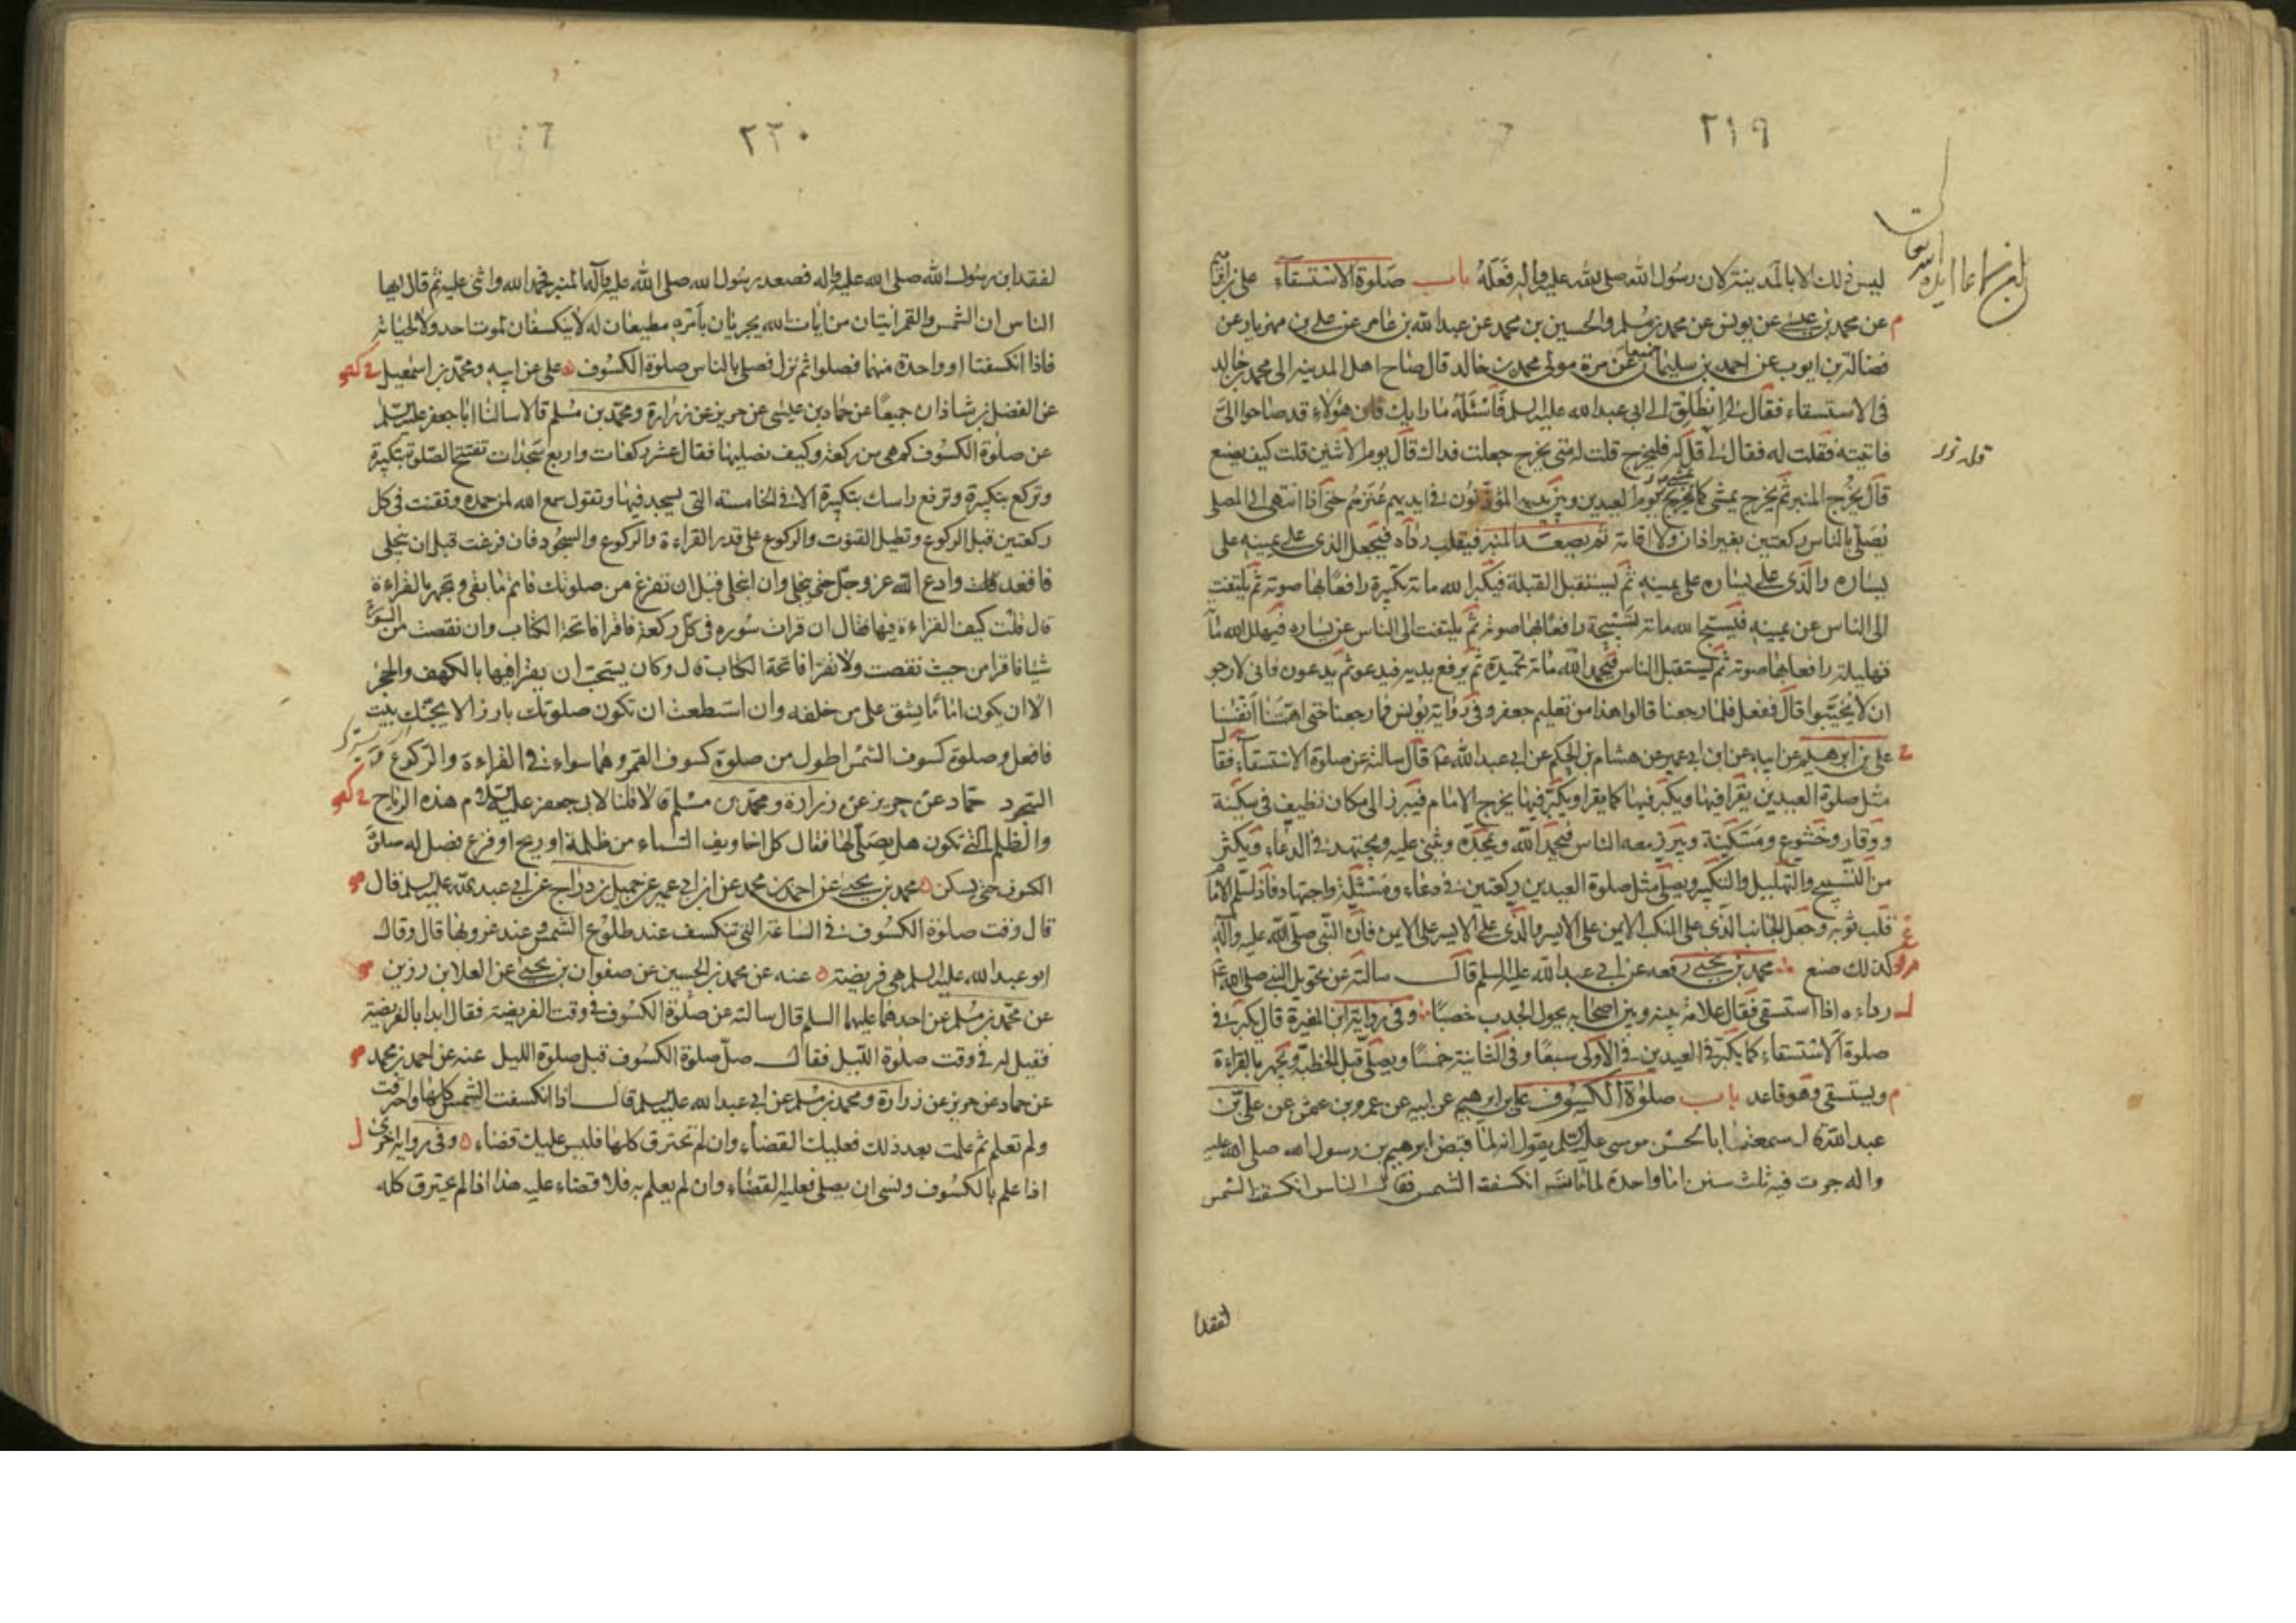 ٢١٩
ليس ذلك الا بالمدينة لان رسول الله صلى الله عليه واله فعله باب صلوة الاستسقاء على بن ابراهيم
عن محمد بن عيسى عن يونس عن محمد بن مسلم والحسين بن محمد عن عبد الله بن عامر عن على بن مهزيار عن
فضالة بن ايوب عن احمد بن سليمان جميعا عن مرة مولى محمد بن خالد قال صاح اهل المدينة الى محمد بن خالد
فى الاستسقاء فقال لى انطلق الى ابى عبد الله عليه السلم فاسئله ما رايك فان هؤلاء قد صاحوا الى
فاتيته فقلت له فقال لى قل له فليخرج قلت له متى يخرج جعلت فداك قال يوم الاثنين قلت كيف يصنع
قال يخرج المنبر ثم يخرج يمشى كما يخرج يوم العيدين وبين يديه المؤذنون فى ايديهم عنزهم حتى اذا انتهى الى المصلى
يصلى بالناس ركعتين بغير اذان ولا اقامة ثم يصعد المنبر فيقلب رداه فيجعل الذى على يمينه على
يساره والذى على يساره على يمينه ثم يستقبل القبلة فيكبر الله مائة تكبيرة رافعا بها صوته ثم يلتفت
الى الناس عن يمينه فيسبح الله مائة تسبيحة رافعا بها صوته ثم يلتفت الى الناس عن يساره فيهلل الله مائة
تهليلة رافعا بها صوته ثم يستقبل الناس فيحمد الله مائة تحميدة ثم يرفع يديه فيدعو ثم يدعون فانى لارجو
ان لا يخيبوا قال ففعل فلما رجعنا قالوا هذا من تعليم جعفر وفى رواية يونس فما رجعنا حتى اهمتنا انفسنا
على بن ابرهيم عن ابيه عن ابن ابى عمير عن هشام بن الحكم عن ابى عبد الله ع قال سالته عن صلوة الاستسقاء فقال
مثل صلوة العيدين يقرا فيها ويكبر فيها كما يقرا ويكبر فيها يخرج الامام فيبرز الى مكان نظيف فى سكينة
ووقار وخشوع ومسكنة ويبرز معه الناس فيحمد الله ويمجده ويثنى عليه ويجتهد فى الدعاء ويكثر
من التسبيح والتهليل والتكبير ويصلى مثل صلوة العيدين ركعتين فى دعاء ومسئلة واجتهاد فاذا سلم الامام
قلب ثوبه وجعل الجانب الذى على المنكب الايمن على الايسر والذى على الايسر على الايمن فان النبى صلى الله عليه واله
كذلك صنع محمد بن يحيى رفعه عن ابى عبد الله عليه السلم قال سالته عن تحويل النبى صلى الله عليه
رداءه اذا استسقى فقال علامة بينه وبين اصحابه يحول الجدب خصبا وفى رواية ابن المغيرة قال يكبر فى
صلوة الاستسقاء كما يكبر فى العيدين فى الاولى سبعا وفى الثانية خمسا ويصلى قبل الخطبة ويجهر بالقراءة
ويستسقى وهو قاعد باب صلوة الكسوف على بن ابرهيم عن ابيه عن عمرو بن عثمن عن على بن
عبد الله قال سمعت ابا الحسن موسى عليه السلم يقول انه لما قبض ابرهيم بن رسول الله صلى الله عليه
واله جرت فيه ثلث سنن اما واحدة لما مات انكسفت الشمس فقال الناس انكسفت الشمس
لفقد ا
٢٢٠
لفقد ابن رسول الله صلى الله عليه واله فصعد رسول الله صلى الله عليه واله المنبر فحمد الله واثنى عليه ثم قال ايها
الناس ان الشمس والقمر ايتان من ايات الله يجريان بامره مطيعان له لا ينكسفان لموت احد ولا لحياته
فاذا انكسفتا او واحدة منهما فصلوا ثم نزل فصلى بالناس صلوة الكسوف على عن ابيه ومحمد بن اسمعيل
عن الفضل بن شاذان جميعا عن حماد بن عيسى عن حريز عن زرارة ومحمد بن مسلم قالا سالنا ابا جعفر عليه السلم
عن صلوة الكسوف كم هى من ركعة وكيف نصليها فقال عشر ركعات واربع سجدات تفتتح الصلوة بتكبيرة
وتركع بتكبيرة وترفع راسك بتكبيرة الا فى الخامسة التى يسجد فيها وتقول سمع الله لمن حمده وتقنت فى كل
ركعتين قبل الركوع وتطيل القنوت والركوع على قدر القراءة والركوع والسجود فان فرغت قبل ان ينجلى
فاقعد وادع الله عز وجل حتى ينجلى وان انجلى قبل ان تفرغ من صلوتك فاتم ما بقى وتجهر بالقراءة
قال قلت كيف القراءة فيها فقال ان قرات سورة فى كل ركعة فاقرا فاتحة الكتاب وان نقصت من السورة
شيئا فاقرا من حيث نقصت ولا تقرا فاتحة الكتاب قال وكان يستحب ان يقرا فيها بالكهف والحجر
الا ان يكون اماما يشق على من خلفه وان استطعت ان تكون صلوتك بارزا لا يجنك بيت
فافعل وصلوة كسوف الشمس اطول من صلوة كسوف القمر وهما سواء فى القراءة والركوع و
السجود حماد عن حريز عن زرارة ومحمد بن مسلم قالا قلنا لابى جعفر عليه السلم هذه الرياح
والظلم التى تكون هل يصلى لها فقال كل اخاويف السماء من ظلمة او ريح او فزع فصل له صلوة
الكسوف حتى يسكن محمد بن يحيى عن احمد بن محمد عن ابن ابى عمير عن جميل بن دراج عن ابى عبد الله عليه السلم قال
قال وقت صلوة الكسوف فى الساعة التى تنكسف عند طلوع الشمس وعند غروبها قال وقال
ابو عبد الله عليه السلم هى فريضة عنه عن محمد بن الحسين عن صفوان بن يحيى عن العلا بن رزين
عن محمد بن مسلم عن احدهما عليهما السلم قال سالته عن صلوة الكسوف فى وقت الفريضة فقال ابدا بالفريضة
فقيل له فى وقت صلوة الليل فقال صل صلوة الكسوف قبل صلوة الليل عنه عن احمد بن محمد
عن حماد عن حريز عن زرارة ومحمد بن مسلم عن ابى عبد الله عليه السلم قال اذا انكسفت الشمس كلها واحترقت
ولم تعلم ثم علمت بعد ذلك فعليك القضاء وان لم تحترق كلها فليس عليك قضاء وفى رواية اخرى
اذا علم بالكسوف ونسى ان يصلى فعليه القضاء وان لم يعلم به فلا قضاء عليه هذا اذا لم يحترق كله